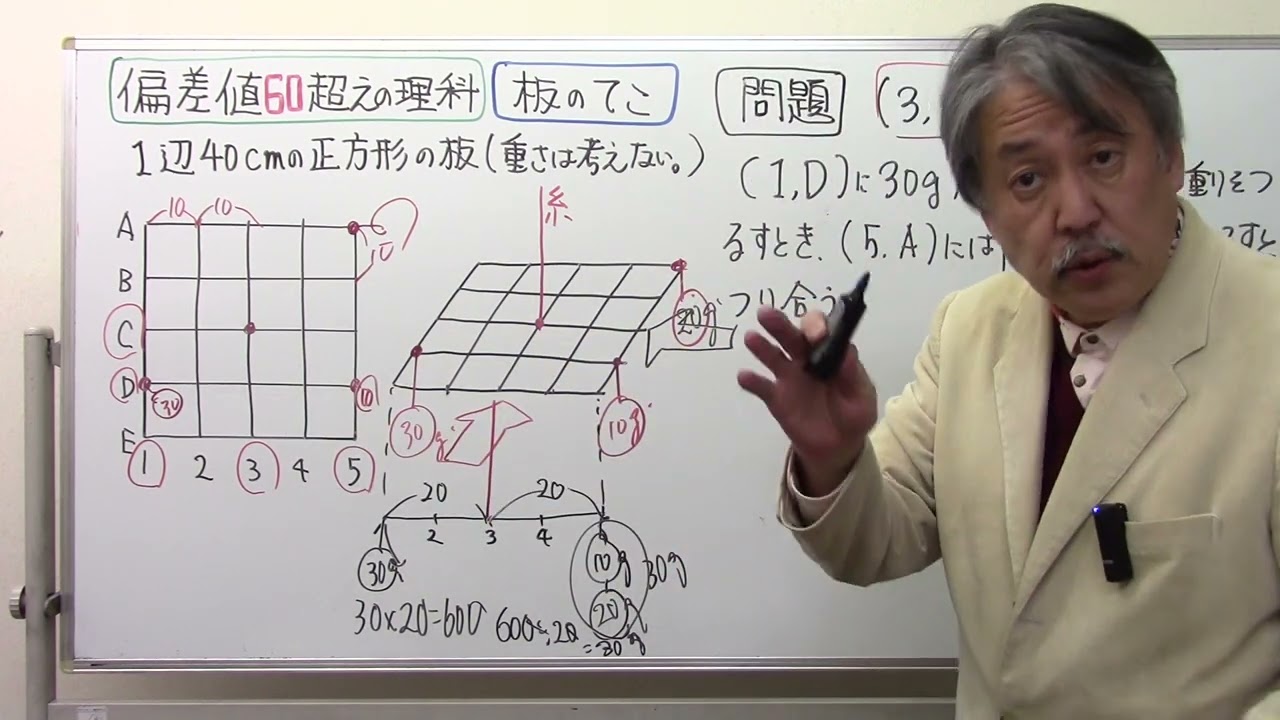 偏差値60超えの理科 板のてこ 問題 (3,
1辺40cmの正方形の板(重さは考えない。)
(1,D)に30g 重りをつ
るすとき、(5.A)には るすと
つり合う
糸
10 10
10
A
B
C
D
E
1 2 3 4 5
30
10
20g
30g
10g
20 20
2 3 4
30g
10g 30g
20g
30×20=600
600÷20
=30g